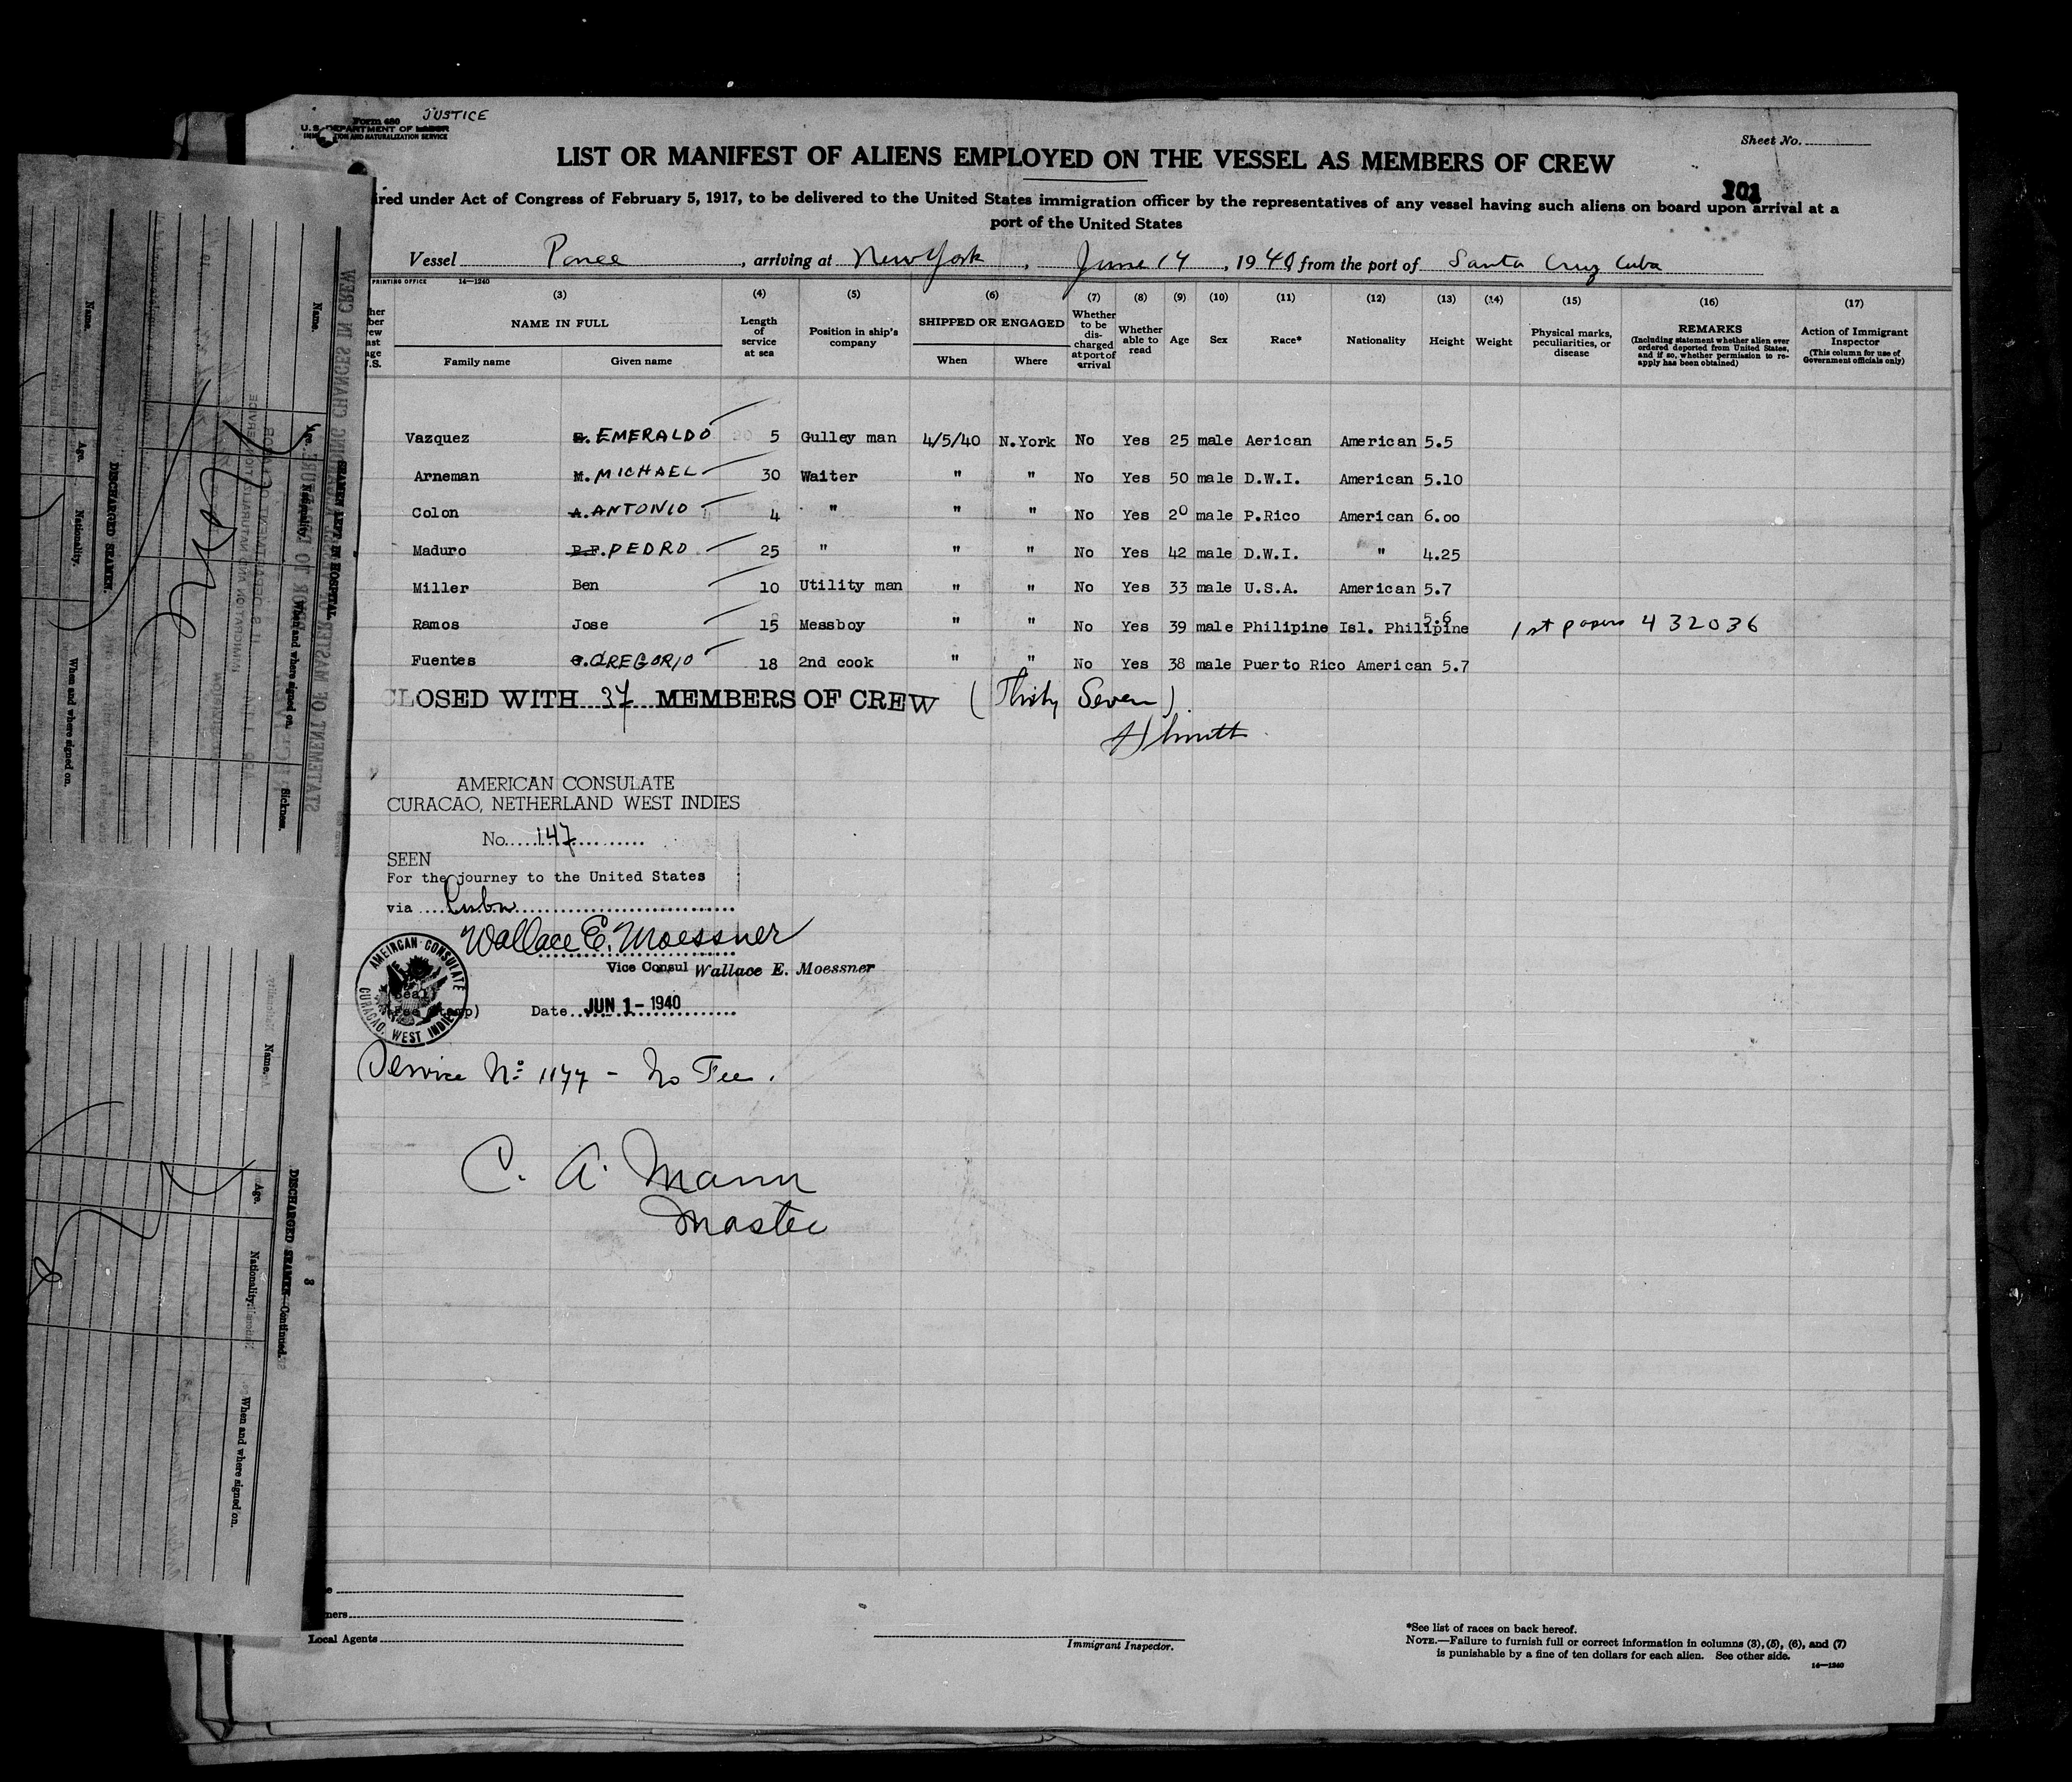 JUSTICE
Form 680
U.S. DEPARTMENT OF LABOR
IMMIGRATION AND NATURALIZATION SERVICE
Sheet No.
LIST OR MANIFEST OF ALIENS EMPLOYED ON THE VESSEL AS MEMBERS OF CREW
ired under Act of Congress of February 5, 1917, to be delivered to the United States immigration officer by the representatives of any vessel having such aliens on board upon arrival at a
port of the United States
Vessel Ponce , arriving at New York , June 14 , 1940 from the port of Santa Cruz Cuba
PRINTING OFFICE 14—1240
(3) (4) (5) (6) (7) (8) (9) (10) (11) (12) (13) (14) (15) (16) (17)
NAME IN FULL
Family name Given name
Length of service at sea
Position in ship's company
SHIPPED OR ENGAGED
When Where
Whether to be discharged at port of arrival
Whether able to read
Age Sex Race* Nationality Height Weight
Physical marks, peculiarities, or disease
REMARKS
(Including statement whether alien ever ordered deported from United States, and if so, whether permission to re-apply has been obtained)
Action of Immigrant Inspector
(This column for use of Government officials only)
Vazquez E. EMERALDO 5 Gulley man 4/5/40 N.York No Yes 25 male Aerican American 5.5
Arneman M. MICHAEL 30 Waiter " " No Yes 50 male D.W.I. American 5.10
Colon A. ANTONIO 4 " " " No Yes 20 male P.Rico American 6.00
Maduro P.F. PEDRO 25 " " " No Yes 42 male D.W.I. " 4.25
Miller Ben 10 Utility man " " No Yes 33 male U.S.A. American 5.7
Ramos Jose 15 Messboy " " No Yes 39 male Philipine Isl. Philipine 5.6 1st papers 432036
Fuentes G. GREGORIO 18 2nd cook " " No Yes 38 male Puerto Rico American 5.7
CLOSED WITH 37 MEMBERS OF CREW (Thirty Seven)
AMERICAN CONSULATE
CURACAO, NETHERLAND WEST INDIES
No. 147
SEEN
For the journey to the United States
via Cuba
Wallace E. Moessner
Vice Consul Wallace E. Moessner
AMEIRCAN CONSULATE
CURACAO, WEST INDIES
Date JUN 1 - 1940
Service No: 1177 - No Fee.
C. A. Mann
Master
Local Agents
Immigrant Inspector.
*See list of races on back hereof.
NOTE.—Failure to furnish full or correct information in columns (3), (5), (6), and (7)
is punishable by a fine of ten dollars for each alien. See other side.
14—1240
STATEMENT OF MASTER
SEAMEN LEFT IN HOSPITAL.
Name. Age. Nationality. When and where signed on. Sickness.
DISCHARGED SEAMEN.
Name. Age. Nationality. When and where signed on.
DISCHARGED SEAMEN—Continued.
Name. Age. Nationality. When and where signed on.
3